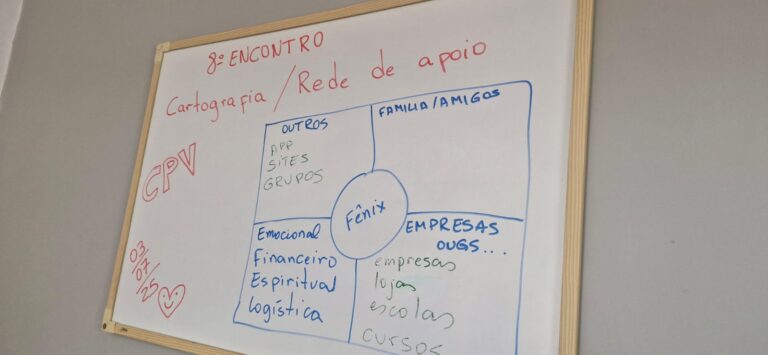 8º ENCONTRO
Cartografia / Rede de apoio
CPV
03/07/25
OUTROS
APP
SITES
GRUPOS
FAMILIA/AMIGOS
Fênix
Emocional
Financeiro
Espiritual
Logística
EMPRESAS
OUGS...
empresas
lojas
escolas
cursos